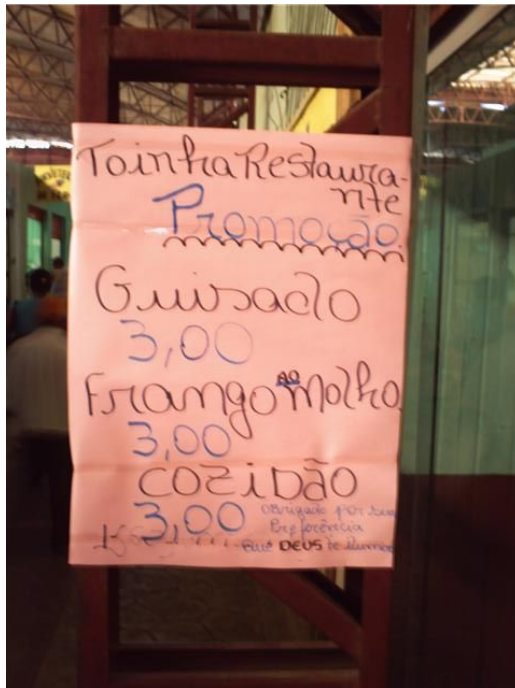 Toinha Restaura-
nte
Promoção.
Guisado
3,00
Frango ao Molho
3,00
COZiDão
3,00
Obrigado por sua
Preferência
Que DEUS te ilumine